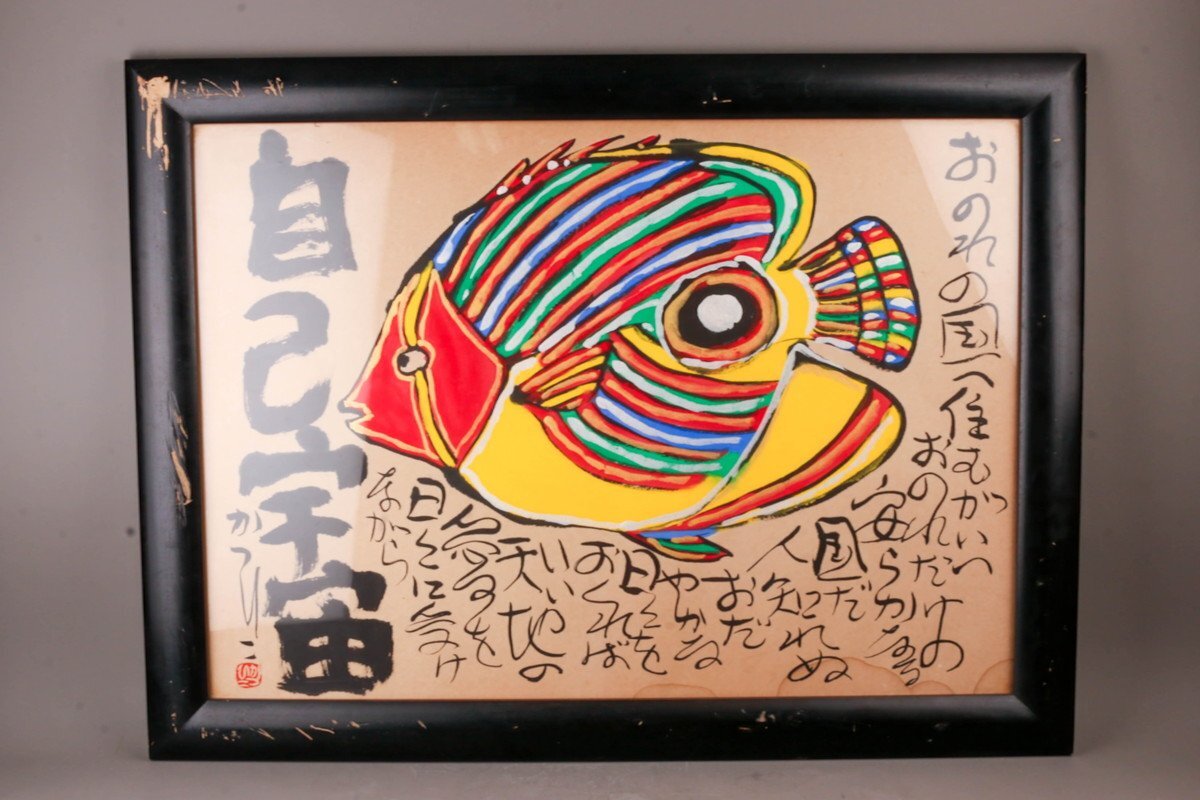 おのれの国へ住むがいい
おのれだけの
安らかなる
国だ
人知れぬ
おだ
やかな
日々を
おくれば
いい
天地の
日々に気付け
ながら
自己宇宙